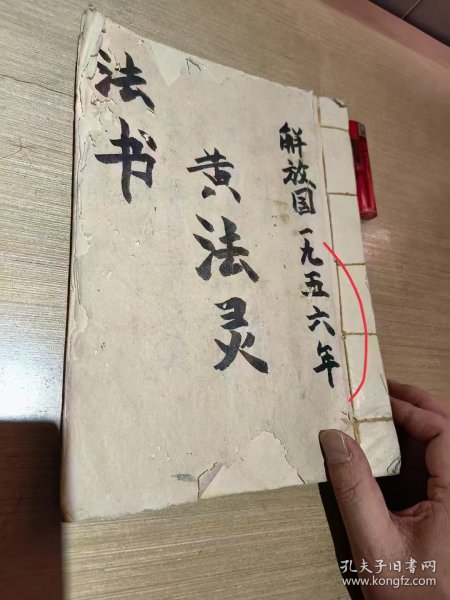 解放国一九五六年
黄法灵
法书
孔夫子旧书网
www.kongfz.com